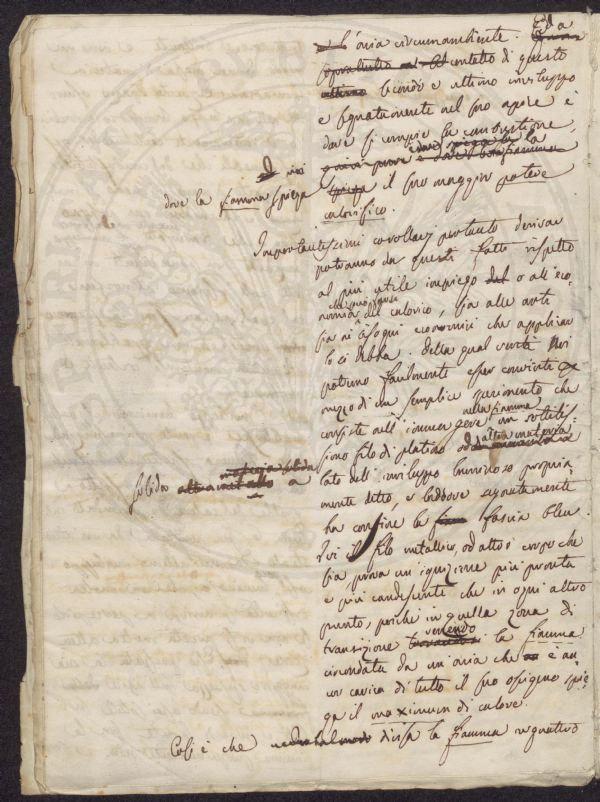 l'aria circumambiente. Ed a
contatto di questo
secondo e ultimo inviluppo
e segnatamente nel suo apice è
dove si compie la combustione,
ed ivi
dove la fiamma spiega
il suo maggior potere
calorifico.
Importantissimi corollarj pertanto derivar
potranno da questi fatti rispetto
al più utile impiego o all'eco-
nomia del calorico, sia alle arti
sia ai bisogni economici che applicar
lo ci debba. Della qual verità
potremo facilmente convincerci
mezzo di un semplice sperimento che
consiste nell'immergere nella fiamma un sottilis-
simo filo di platino od altra materia
solida a
lato dell'inviluppo luminoso propria-
mente detto, e laddove segnatamente
ha confine la fascia bleu.
Ivi il filo metallico, od altro corpo che
sia prova un'ignizione più pronta
e più candescente che in ogni altro
punto, perché in quella zona di
transizione venendo la fiamma
circondata da un'aria che è an-
cor carica di tutto il suo ossigeno spie-
ga il maximum di calore.
Così è che divisa la fiamma